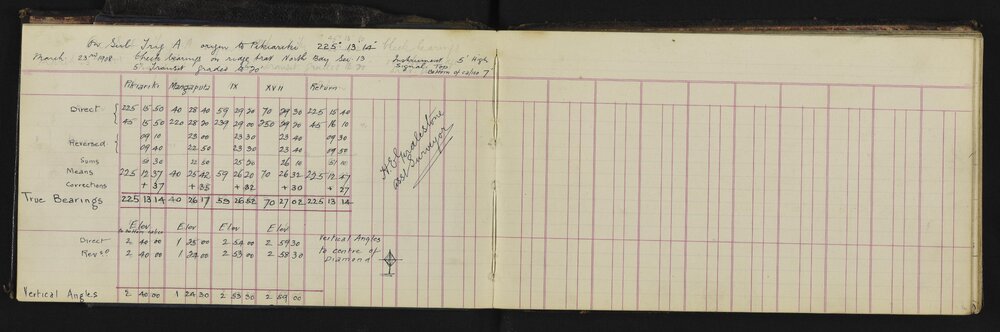 On Sub Trig A origin to Pikiariki 225° 13' 14"
March 23rd 1908 Check bearings on ridge Nth North Bdy Sec 13 Instrument 5' High
5" Transit grades to 20" Signal Top
Bottom of calico 7
Pikiariki Mangaputa IX XVII Return
Direct 225 15 50 40 28 40 59 29 20 70 29 30 225 15 40
45 15 50 220 28 20 239 29 00 250 29 20 45 16 10
09 10 23 00 23 30 23 40 09 30
Reversed 09 40 22 50 23 30 23 40 09 50
Sums 50 30 22 50 25 20 26 10 51 10
Means 225 12 37 40 25 42 59 26 20 70 26 32 225 12 47
Corrections + 37 + 35 + 32 + 30 + 27
True Bearings 225 13 14 40 26 17 59 26 52 70 27 02 225 13 14
H.E. Girdlestone
Asst Surveyor
Elev Elev Elev Elev
to bottom calico
Direct 2 40 00 1 25 00 2 54 00 2 59 30
Revsd 2 40 00 1 24 00 2 53 00 2 58 30
Vertical Angles
to centre of
Diamond
Vertical Angles 2 40 00 1 24 30 2 53 30 2 59 00